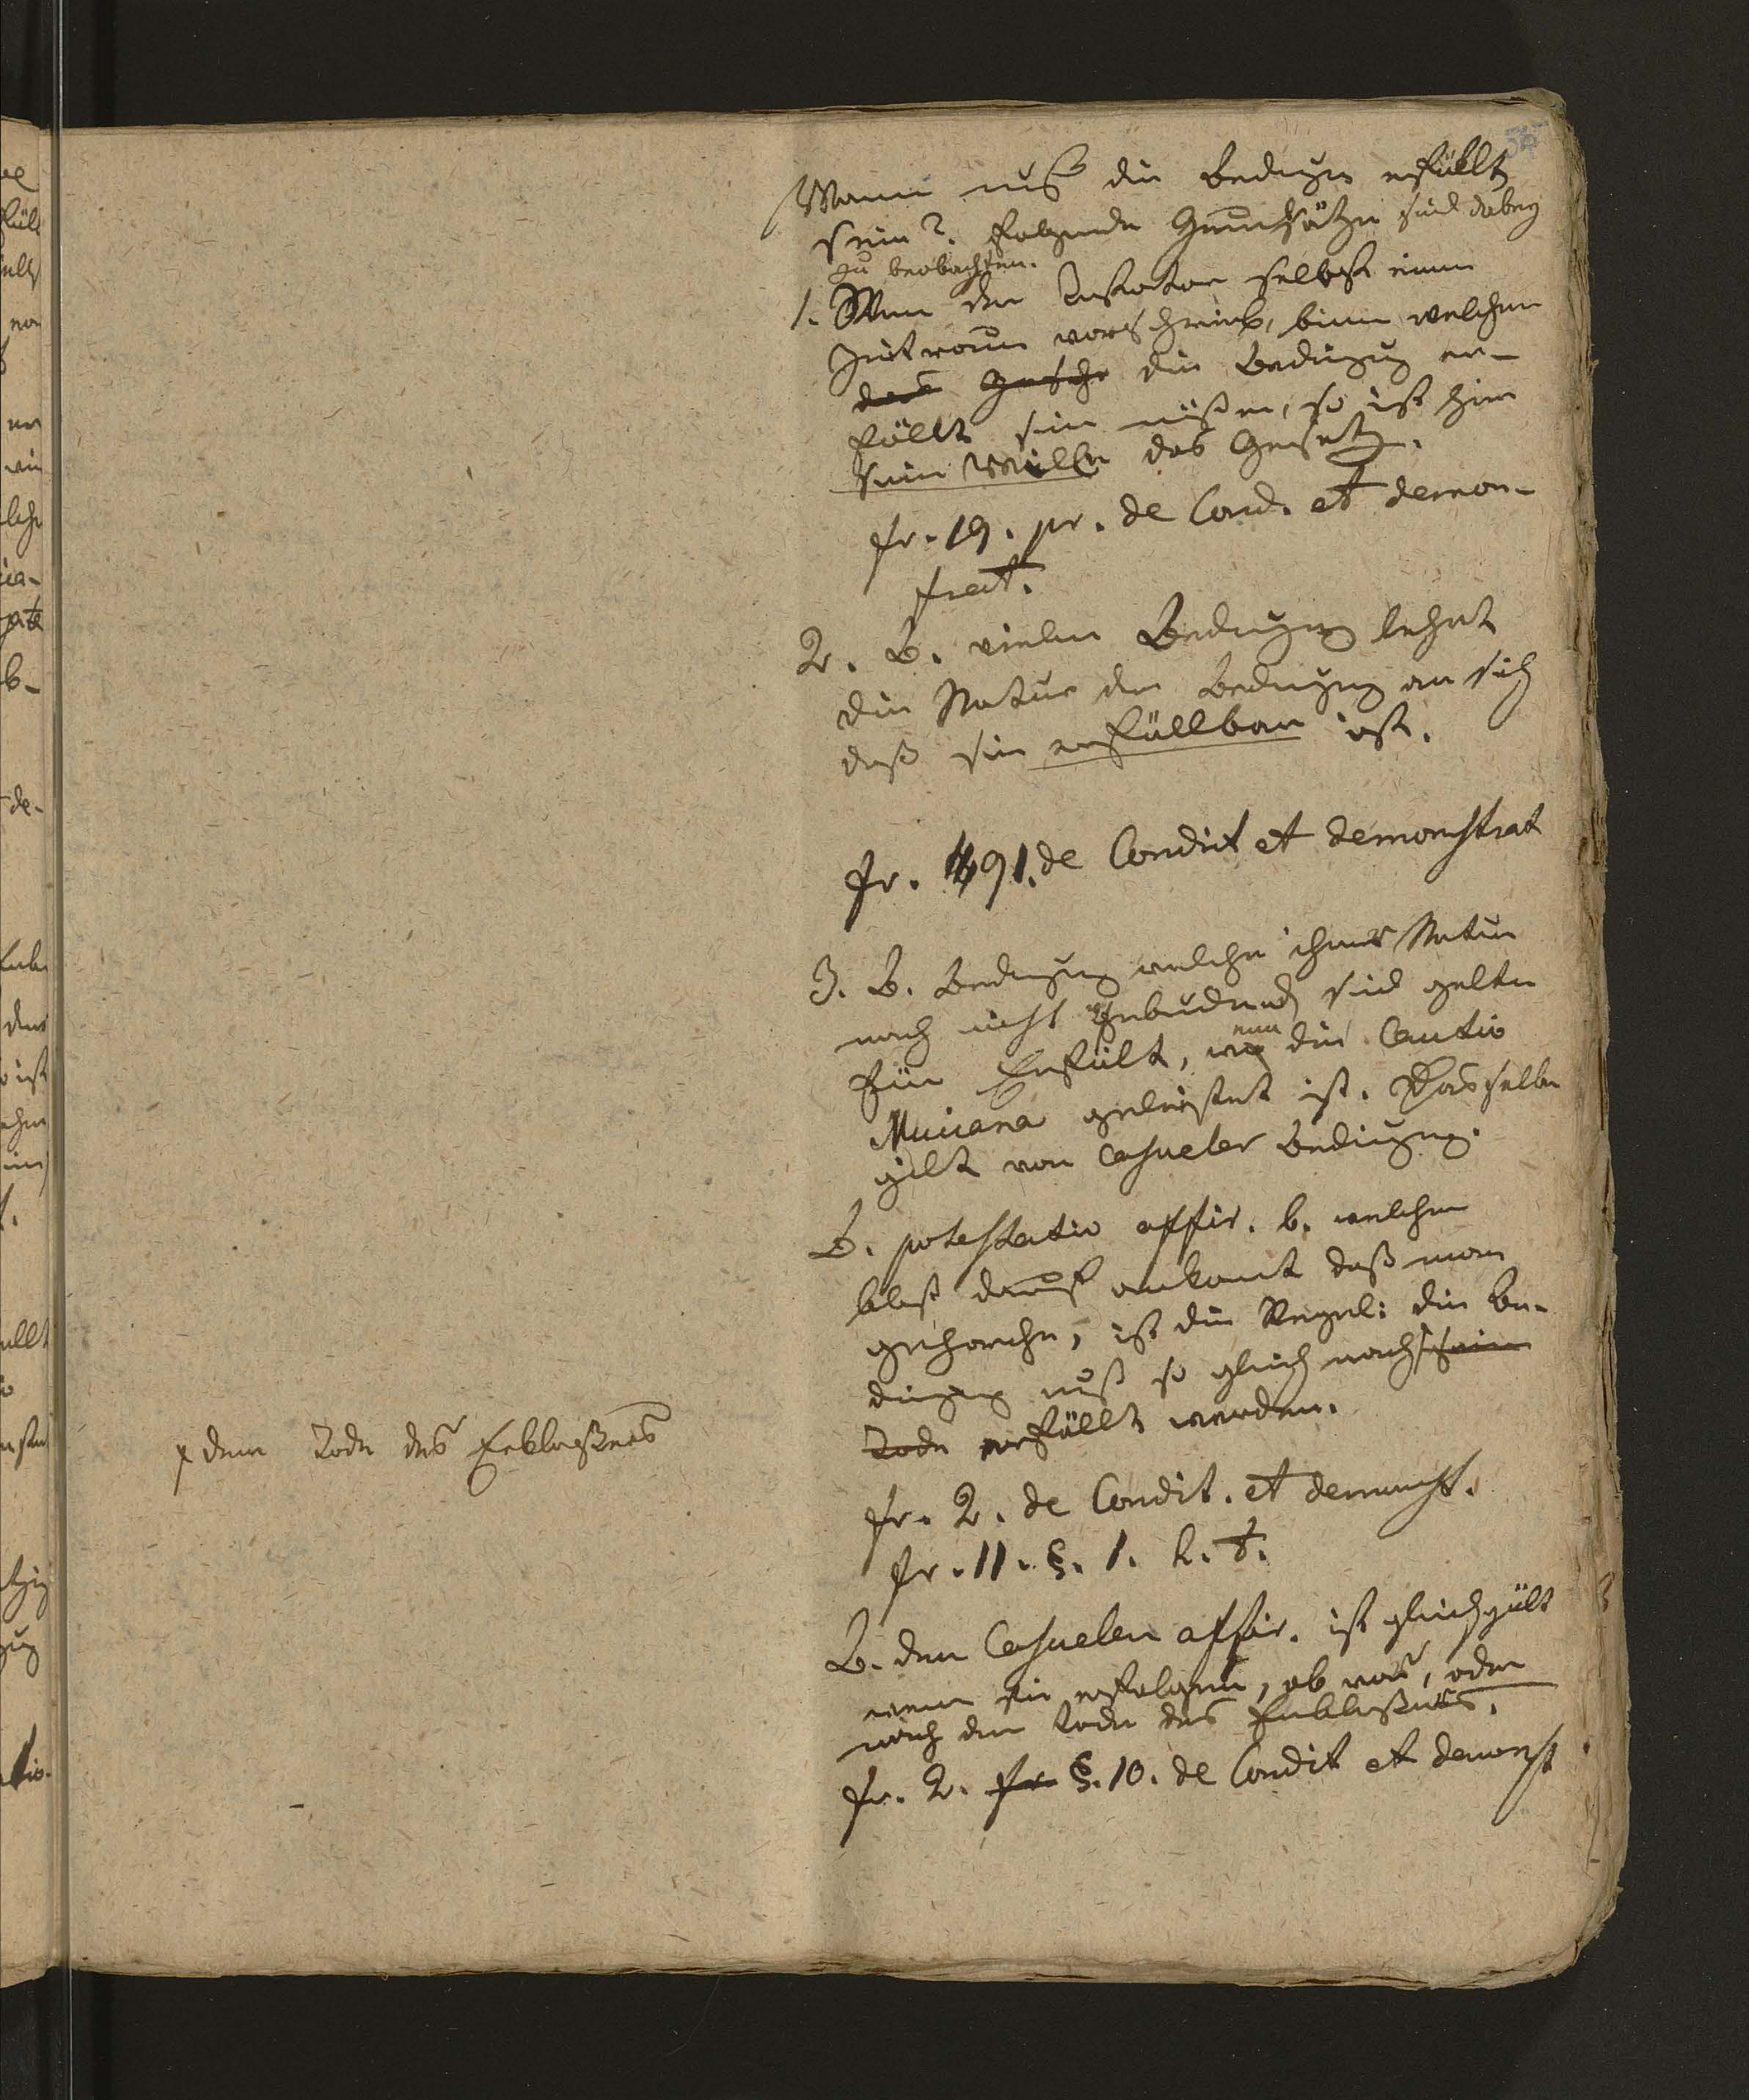 Wann muß die Bedingung erfüllt
sein? folgende Grundsätze sind dabey
zu beobachten.
1. Wenn der Testator selbst einen
Zeitraum vorschreib, binn welchem
das Gesche die Bedingung er-
füllt sein müßen, so ist hier
sein Wille das Gesetz.
fr. 19. pr. de Cond. et demon-
strat.
2. B. vielen Bedingung lehrt
die Natur der Bedingung an sich
daß sie erfüllbar ist.
fr. 91. de Condit et demonstrat
3. B. Bedingung welche ihrer Natur
nach nicht sind gelten
für Erfült, wenn die Cautio
Muciana geleistet ist. Dasselbe
gilt von Casueler Bedingung.
B. potestativ affir. b. welchen
bloß drauf ankomt daß man
gehorche, ist die Regel: die Be-
dingung muß so gleich nach sein
Tode erfüllt werden.
dem Tode des Erblaßers
fr. 2. de Condit. et demonst.
fr. 11. §. 1. h. t.
B. den Casuelen affir. ist gleichgült
wenn sie erfolgen, ob vor, oder
nach dem Tode des Erblaßers.
fr. 2. fr §. 10. de Condit et demonst